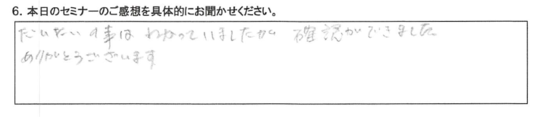 6. 本日のセミナーのご感想を具体的にお聞かせください。
だいたいの事は わかっていましたが 確認ができました。
ありがとうございます